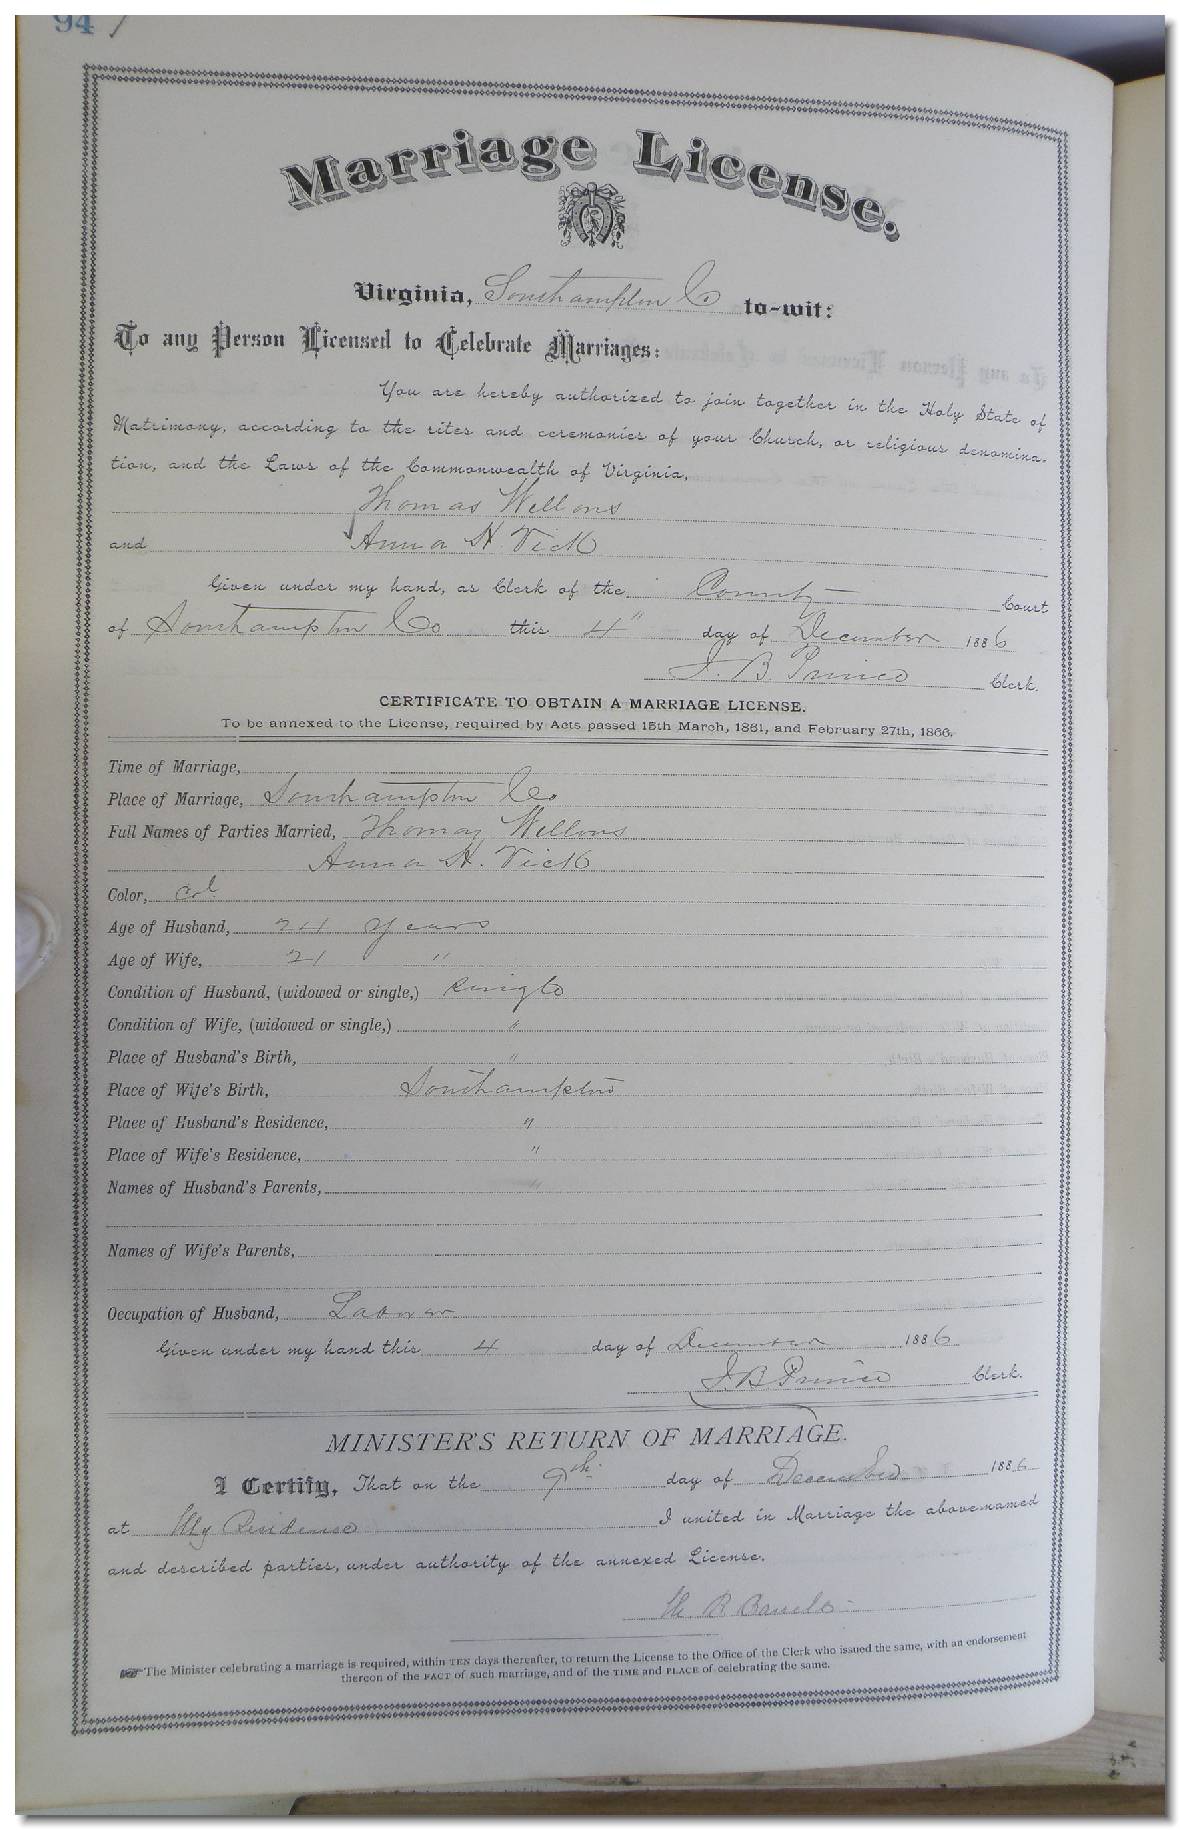 94
Marriage License.
Virginia, Southampton Co to-wit:
To any Person Licensed to Celebrate Marriages:
You are hereby authorized to join together in the Holy State of
Matrimony, according to the rites and ceremonies of your Church, or religious denomina-
tion, and the Laws of the Commonwealth of Virginia,
Thomas Wellons
and Anna H. Vick
Given under my hand, as Clerk of the County Court
of Southampton Co this 4" day of December 1886
J. B. Prince Clerk.
CERTIFICATE TO OBTAIN A MARRIAGE LICENSE.
To be annexed to the License, required by Acts passed 15th March, 1861, and February 27th, 1866.
Time of Marriage,
Place of Marriage, Southampton Co.
Full Names of Parties Married, Thomas Wellons
Anna H. Vick
Color, Col
Age of Husband, 24 years
Age of Wife, 21 "
Condition of Husband, (widowed or single,) Single
Condition of Wife, (widowed or single,) "
Place of Husband's Birth, "
Place of Wife's Birth, Southampton
Place of Husband's Residence, "
Place of Wife's Residence, "
Names of Husband's Parents, "
Names of Wife's Parents,
Occupation of Husband, Laborer
Given under my hand this 4 day of December 1886
J. B. Prince Clerk.
MINISTER'S RETURN OF MARRIAGE.
I Certify, That on the 9th day of December 1886
at My Residence I united in Marriage the above-named
and described parties, under authority of the annexed License.
R
The Minister celebrating a marriage is required, within TEN days thereafter, to return the License to the Office of the Clerk who issued the same, with an endorsement
thereon of the FACT of such marriage, and of the TIME and PLACE of celebrating the same.